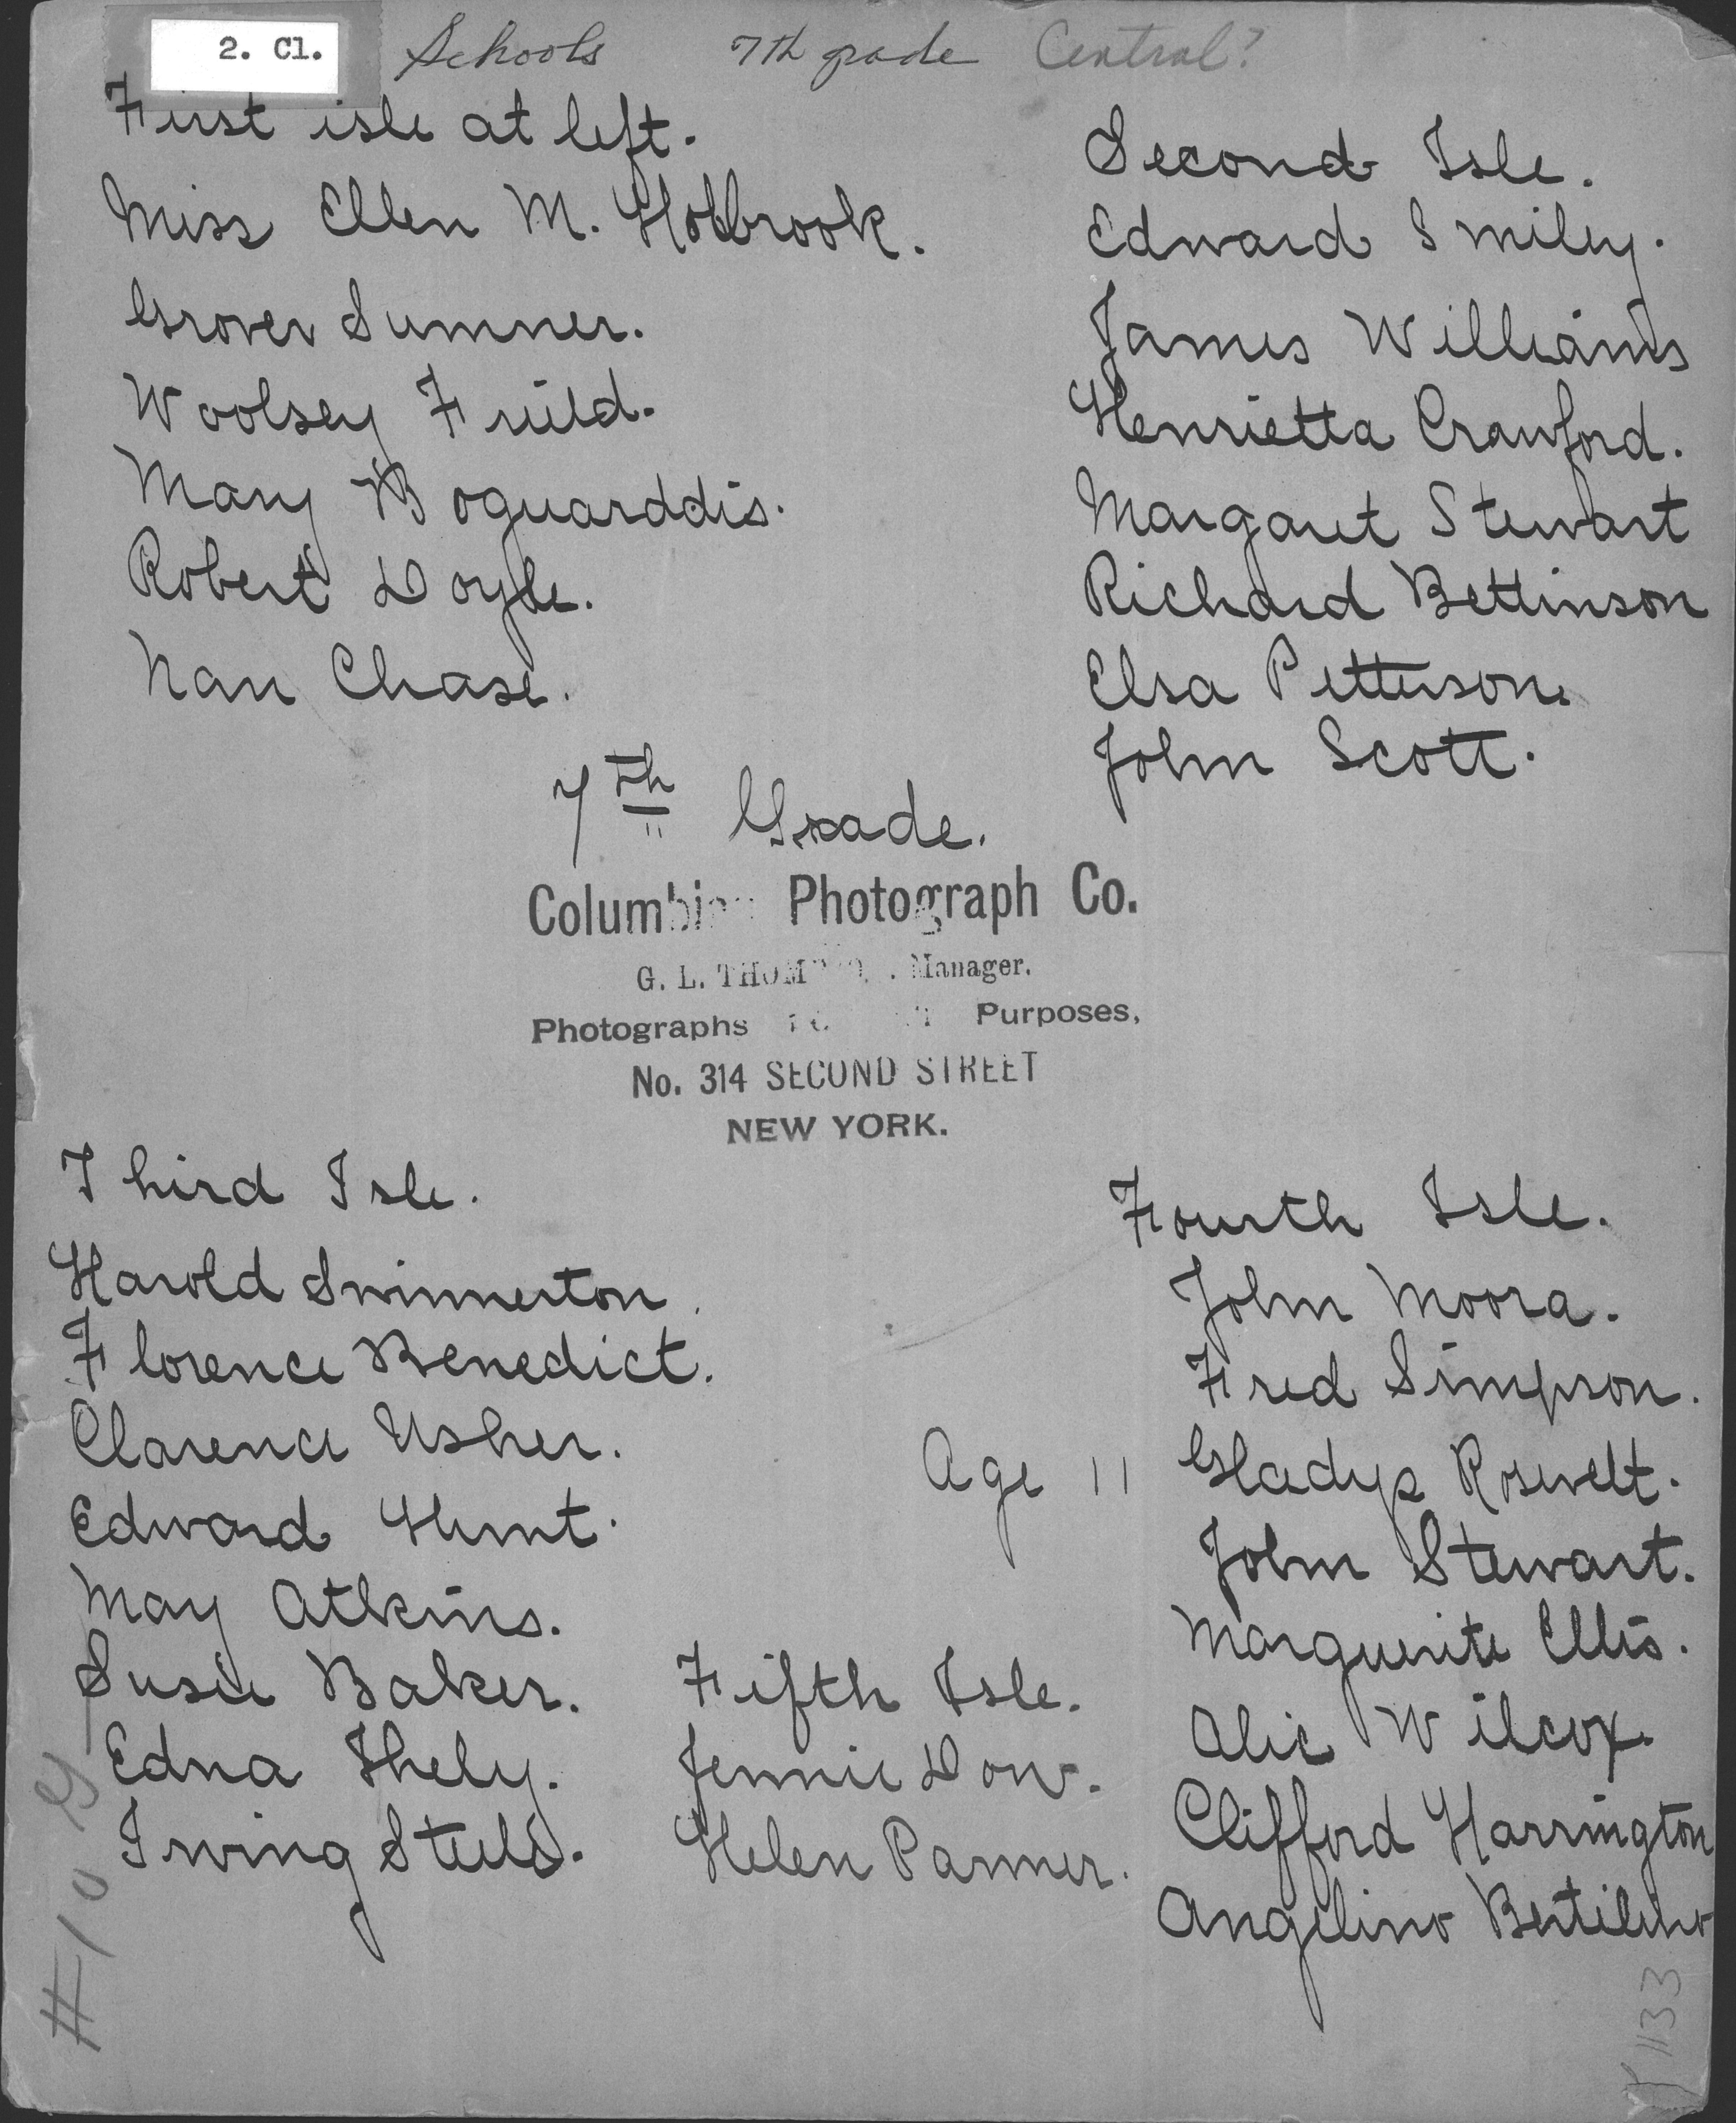 2. Cl.
Schools 7th grade Central?
First isle at left.
Miss Ellen M. Holbrook.
Grover Sumner.
Woolsey
Mary Boguarddis.
Robert Doyle.
Nan Chase.
Second Isle.
Edward Smiley.
James Williams
Henrietta Crawford.
Margaret Stewart
Richard Bettinson
Elsa Petterson.
John Scott.
7th Grade.
Photograph Co.
G. L. Manager.
Photographs Purposes,
No. 314 SECOND STREET
NEW YORK.
Third Isle.
Harold Swinnerton
Florence Benedict.
Clarence Usher.
Edward Hunt.
May Atkins.
Susie Baker.
Edna
Irving
Fourth Isle.
John Moora.
Fred Simpson.
Age 11 Gladys Rosevelt.
John Stewart.
Marguerite Ellis.
Alic Wilcox.
Clifford Harrington
Angelino
Fifth Isle.
Jennie Dow.
Helen